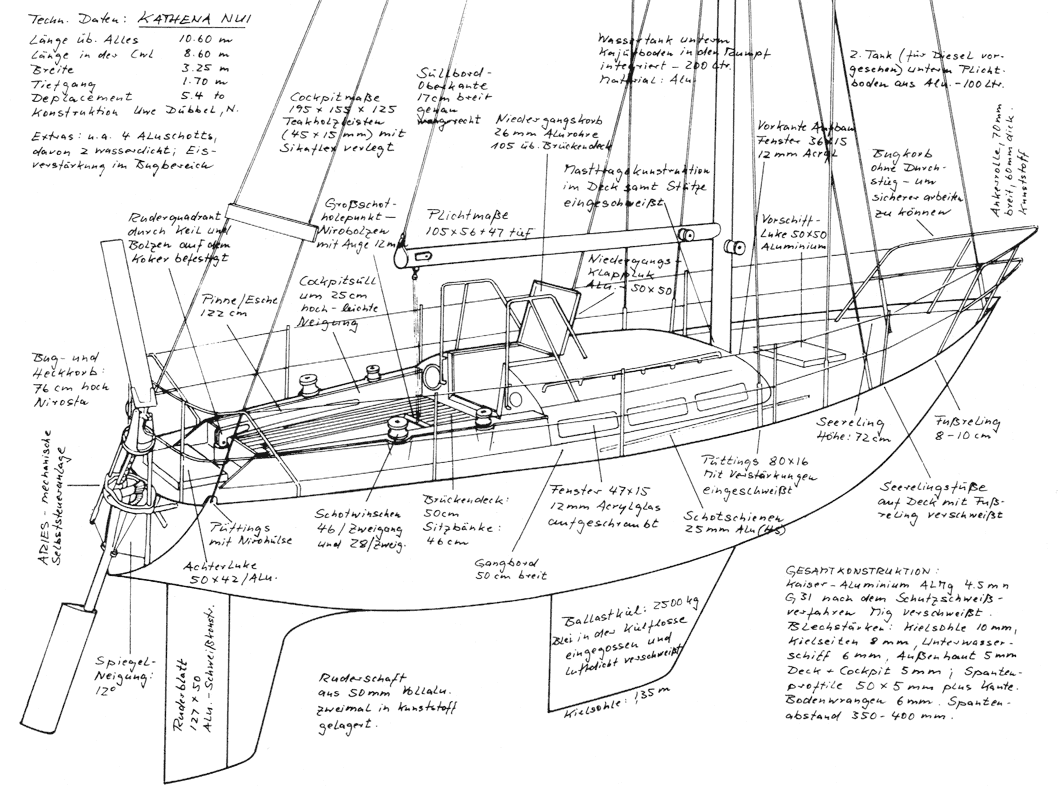 Techn. Daten: KATHENA NUI
Länge üb. Alles 10.60 m
Länge in der Cwl 8.60 m
Breite 3.25 m
Tiefgang 1.70 m
Deplacement 5.4 to
Konstruktion Uwe Dübbel, N.
Extras: u.a. 4 Aluschotts,
davon 2 wasserdicht; Eis-
verstärkung im Bugbereich
Cockpitmaße
195 x 155 x 125
Teakholzleisten
(45 x 15 mm) mit
Sikaflex verlegt
Süllbord-
Oberkante
17cm breit
genau
waagrecht
Niedergangskorb
26 mm Alurohre
105 üb. Brückendeck
Wassertank unterm
Kajütboden in den Rumpf
integriert - 200 Ltr.
Material: Alu.
2. Tank (für Diesel vor-
gesehen) unterm Plicht-
boden aus Alu. - 100 Ltr.
Vorkante Aufbau
Fenster 36x15
12 mm Acryl
Bugkorb
ohne Durch-
stieg - um
sicherer arbeiten
zu können
Ankerrolle, 70 mm
breit, 60mm dick.
Kunststoff
Masttragekonstruktion
im Deck samt Stütze
eingeschweißt
Ruderquadrant
durch Keil und
Bolzen auf dem
Koker befestigt
Großschot-
holepunkt -
Nirobolzen
mit Auge 12mm
Plichtmaße
105 x 56 + 47 tief
Vorschiff-
Luke 50x50
Aluminium
Niedergangs-
Klappluk
Alu. - 50x50
Cockpitsüll
um 25cm
hoch - leichte
Neigung
Pinne/Esche
122 cm
Bug- und
Heckkorb:
76 cm hoch
Nirosta
ARIES - mechanische
Selbststeueranlage
Seereling
Höhe: 72cm
Fußreling
8-10 cm
Püttings 80x16
Mit Verstärkungen
eingeschweißt
Seerelingsfüße
auf Deck mit Fuß-
reling verschweißt
Püttings
mit Nirohülse
Schotwinschen
46/Zweigang
und 28/Zweig.
Brückendeck:
50cm
Sitzbänke:
46cm
Fenster 47x15
12mm Acrylglas
aufgeschraubt
Schotschienen
25 mm Alu
Achterluke
50 x 42/Alu.
Gangbord
50 cm breit
GESAMTKONSTRUKTION:
Kaiser-Aluminium ALMg 4.5 mn
G 31 nach dem Schutzschweiß-
verfahren Mig verschweißt.
Blechstärken: Kielsohle 10 mm,
Kielseiten 8 mm, Unterwasser-
schiff 6 mm, Außenhaut 5 mm
Deck + Cockpit 5 mm; Spanten-
profile 50 x 5 mm plus Kante.
Bodenwrangen 6 mm. Spanten-
abstand 350-400 mm.
Ballastkiel: 2500 kg
Blei in der Kielflosse
eingegossen und
luftdicht verschweißt
Kielsohle: 1,35 m
Spiegel-
Neigung:
12°
Ruderblatt
127 x 50
Alu.-Schweißkonstr.
Ruderschaft
aus 50mm Vollalu.
zweimal in Kunststoff
gelagert.